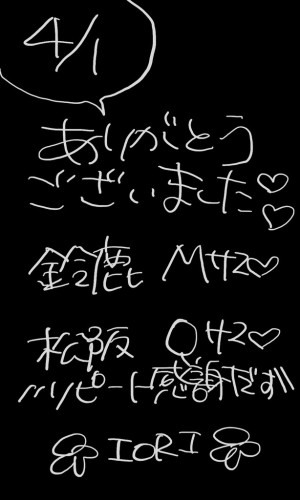 4/1
ありがとう
ございました♡♡
鈴鹿 Mサ2♡
松阪 Qサ2♡
リピート感謝だョ!!
IORI